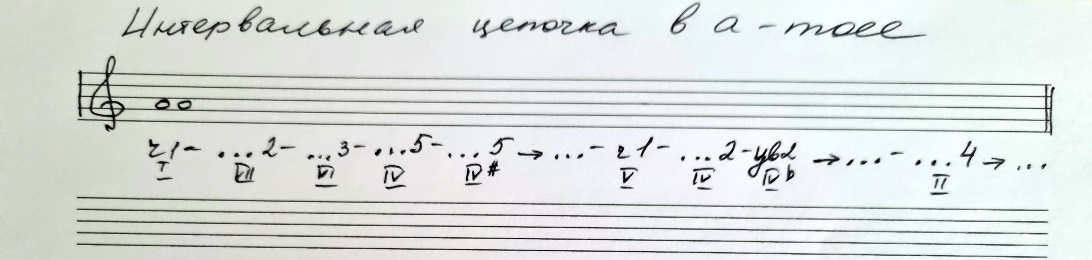 Интервальная цепочка в a-moll
ч1- ...2- ...3- ...5- ...5 → ...- ч1- ...2-ув2 → ...- ...4 → ...
I VII VI IV IV# V IV IVb II